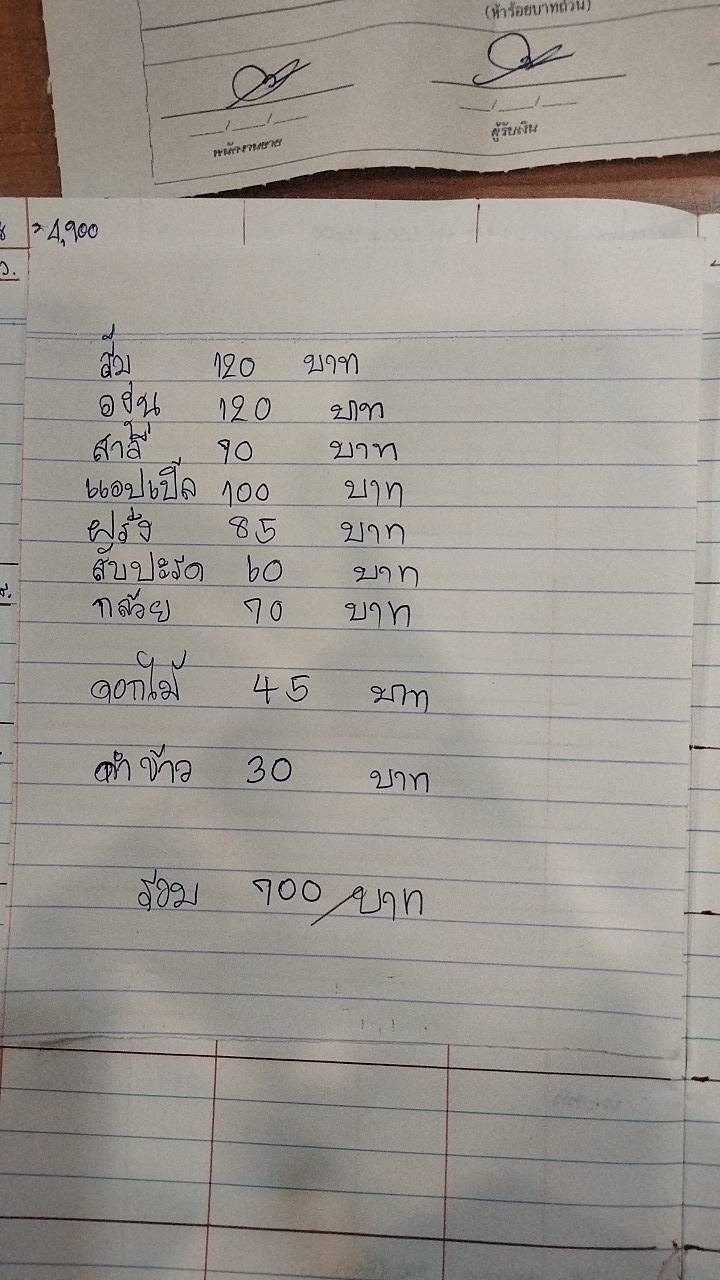 (ห้าร้อยบาทถ้วน)
__/__/__ __/__/__
พนักงานขาย ผู้รับเงิน
4,900
ส้ม 120 บาท
องุ่น 120 บาท
สาลี่ 90 บาท
แอปเปิ้ล 100 บาท
ฝรั่ง 85 บาท
สับปะรด 60 บาท
กล้วย 70 บาท
ดอกไม้ 45 บาท
ค่าข้าว 30 บาท
รวม 700 บาท